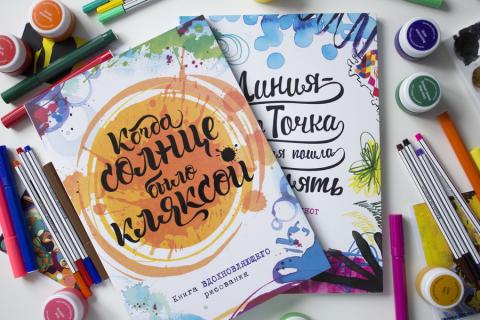 Когда
солнце
было
кляксой
Книга вдохновляющего
рисования
Линия-
Точка
пошла